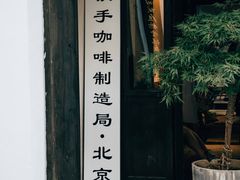 手咖啡制造局·北京